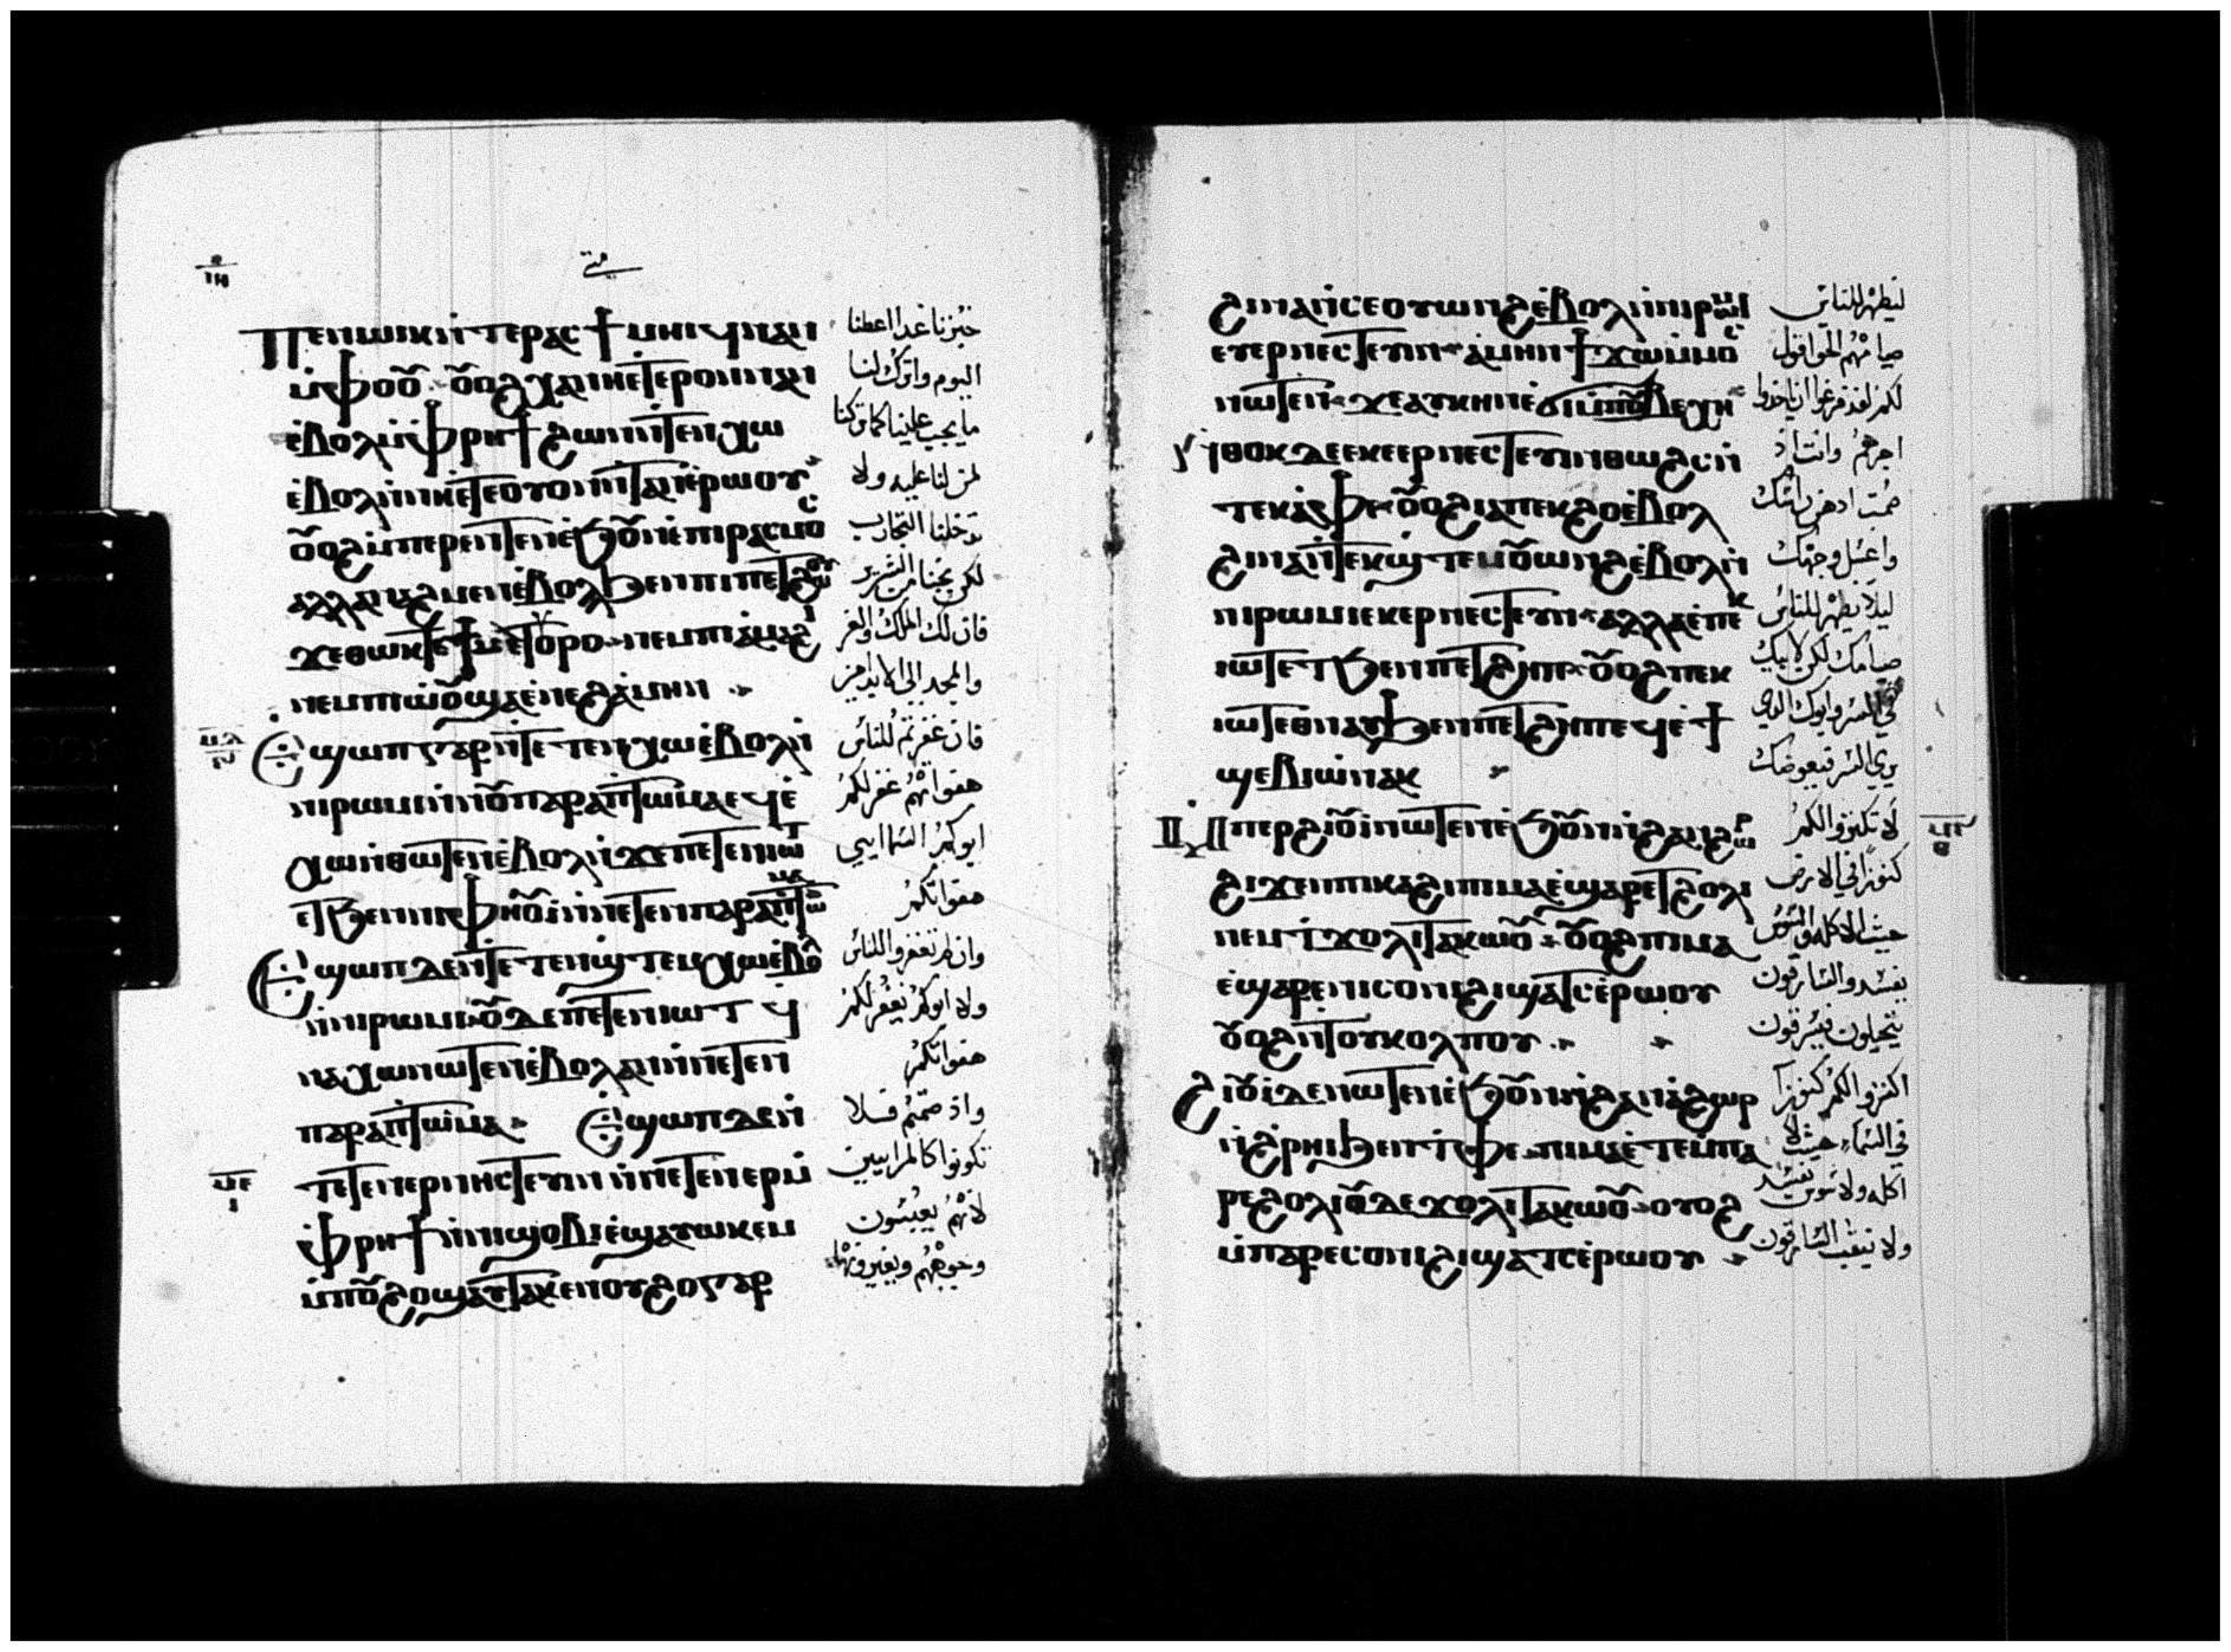 ⲓⲏ
متى
Ⲡⲉⲛⲱⲓⲕ ⲛ̀ⲧⲉ ⲣⲁⲥϯ ⲙⲏⲓϥ ⲛⲁⲛ
ⲙ̀ⲫⲟⲟⲩ ⲟⲩⲟϩ ⲭⲁ ⲛⲏⲉⲧⲉⲣⲟⲛ ⲛⲁⲛ
ⲉ̀ⲃⲟⲗ ⲙ̀ⲫⲣⲏϯ ϩⲱⲛ ⲛ̀ⲧⲉⲛⲭⲱ
ⲉ̀ⲃⲟⲗ ⲛ̀ⲛⲏⲉⲧⲉ ⲟⲩⲟⲛ ⲛ̀ⲧⲁⲛ ⲉ̀ⲣⲱⲟⲩ
ⲟⲩⲟϩ ⲙ̀ⲡⲉⲣⲉⲛⲧⲉⲛ ⲉ̀ϧⲟⲩⲛ ⲉ̀ⲡⲓⲣⲁⲥⲙⲟⲥ
ⲁⲗⲗⲁ ⲛⲁϩⲙⲉⲛ ⲉ̀ⲃⲟⲗϧⲉⲛ ⲡⲓⲡⲉⲧϩⲱⲟⲩ
ϫⲉ ⲑⲱⲕ ⲧⲉ ϯⲙⲉⲧⲟⲩⲣⲟ ⲛⲉⲙ ϯⲁ̀ⲙⲁϩⲓ
ⲛⲉⲙ ⲡⲓⲱ̀ⲟⲩ ϣⲁ ⲉ̀ⲛⲉϩ ⲁ̀ⲙⲏⲛ
ⲙⲇ
Ⲉϣⲱⲡ ⲅⲁⲣ ⲛ̀ⲧⲉⲧⲉⲛⲭⲱ ⲉ̀ⲃⲟⲗ ⲛ̀
ⲛⲓⲣⲱⲙⲓ ⲛ̀ⲛⲟⲩⲡⲁⲣⲁⲡⲧⲱⲙⲁ ⲉϥⲉ̀
ⲭⲱ ⲛⲱⲧⲉⲛ ⲉ̀ⲃⲟⲗ ⲛ̀ϫⲉ ⲡⲉⲧⲉⲛⲓⲱⲧ
ⲉⲧϧⲉⲛ ⲛⲓⲫⲏⲟⲩⲓ̀ ⲛ̀ⲛⲉⲧⲉⲛⲡⲁⲣⲁⲡⲧⲱⲙⲁ
Ⲉϣⲱⲡ ⲇⲉ ⲛ̀ⲧⲉⲧⲉⲛϣ̀ⲧⲉⲙⲭⲱ ⲉ̀ⲃⲟⲗ
ⲛ̀ⲛⲓⲣⲱⲙⲓ ⲟⲩⲇⲉ ⲡⲉⲧⲉⲛⲓⲱⲧ ϥ̀
ⲛⲁⲭⲱ ⲛⲱⲧⲉⲛ ⲉ̀ⲃⲟⲗ ⲁⲛ ⲛ̀ⲛⲉⲧⲉⲛ
ⲡⲁⲣⲁⲡⲧⲱⲙⲁ Ⲉϣⲱⲡ ⲇⲉ ⲛ̀
ⲙⲉ
ⲧⲉⲧⲉⲛⲉⲣⲛⲏⲥⲧⲉⲩⲓⲛ ⲙ̀ⲡⲉⲧⲉⲛⲉⲣ ⲙ̀
ⲫⲣⲏϯ ⲛ̀ⲛⲓϣⲟⲃⲓ ⲉ̀ϣⲁⲩⲱⲕⲉⲙ
ⲙ̀ⲡⲟⲩϩⲟ ϣⲁⲩⲧⲁⲕⲉ ⲛⲟⲩϩⲟ ⲅⲁⲣ
خبزنا غدا اعطنا
اليوم واترك لنا
ما يجب علينا كما تركنا
لمن لنا عليه ولا
تدخلنا التجارب
لكن نجنا من الشرير
فان لك الملك والعز
والمجد الى الابد امين
فان غفرتم للناس
هفواتهم غفر لكم
ابوكم السماايي
هفواتكم
وان لم تغفروا للناس
ولا ابوكم يغفر لكم
هفواتكم
واذ صمتم فلا
تكونوا كالمرايين
لانهم يعبسون
وجوههم ويغيرونها
ϩⲓⲛⲁ ⲛ̀ⲥⲉⲟⲩⲱⲛϩ ⲉ̀ⲃⲟⲗ ⲛ̀ⲛⲓⲣⲱⲙⲓ
ⲉⲩⲉⲣⲛⲉⲥⲧⲉⲩⲓⲛ ⲁ̀ⲙⲏⲛ ϯϫⲱ ⲙ̀ⲙⲟⲥ
ⲛⲱⲧⲉⲛ ϫⲉ ⲁⲩⲕⲏⲛ ⲉ̀ϭⲓ ⲙ̀ⲡⲟⲩⲃⲉⲭⲉ
Ⲛⲑⲟⲕ ⲇⲉ ⲉⲕⲉⲉⲣⲛⲉⲥⲧⲉⲩⲓⲛ ⲑⲱϩⲥ ⲛ̀
ⲧⲉⲕⲁ̀ⲫⲉ ⲟⲩⲟϩ ⲓⲁ ⲡⲉⲕϩⲟ ⲉ̀ⲃⲟⲗ
ϩⲓⲛⲁ ⲛ̀ⲧⲉⲕϣ̀ⲧⲉⲙⲟⲩⲱⲛϩ ⲉ̀ⲃⲟⲗ ⲛ̀
ⲛⲓⲣⲱⲙⲓ ⲉⲕⲉⲣⲛⲉⲥⲧⲉⲩⲓⲛ ⲁⲗⲗⲁ ⲉ̀ⲡⲉⲕ
ⲓⲱⲧ ⲉⲧϧⲉⲛ ⲡⲉⲧϩⲏⲡ ⲟⲩⲟϩ ⲡⲉⲕ
ⲓⲱⲧ ⲉⲑⲛⲁⲩ ϧⲉⲛ ⲡⲉⲧϩⲏⲡ ⲉϥⲉ̀ϯ
ϣⲉⲃⲓⲱ̀ ⲛⲁⲕ
Ⲙⲡⲉⲣϩⲓⲟⲩⲓ̀ ⲛⲱⲧⲉⲛ ⲉ̀ϧⲟⲩⲛ ⲛ̀ϩⲁⲛⲁϩⲱⲣ
ϩⲓϫⲉⲛ ⲡⲓⲕⲁϩⲓ ⲡⲓⲙⲁ ⲉ̀ϣⲁⲣⲉ ⲧϩⲟⲗⲓ
ⲛⲉⲙ ϯϫⲟⲗⲓ ⲧⲁⲕⲱⲟⲩ ⲟⲩⲟϩ ⲡⲓⲙⲁ
ⲉ̀ϣⲁⲣⲉ ⲛⲓⲥⲟⲛⲓ ϩⲓϣⲁⲧⲥ ⲉ̀ⲣⲱⲟⲩ
ⲟⲩⲟϩ ⲛ̀ⲧⲟⲩⲕⲟⲗⲡⲟⲩ
ϩⲓⲟⲩⲓ̀ ⲇⲉ ⲛⲱⲧⲉⲛ ⲉ̀ϧⲟⲩⲛ ⲛ̀ϩⲁⲛⲁ̀ϩⲱⲣ
ⲛ̀ϩ̀ⲣⲏⲓ ϧⲉⲛ ⲧ̀ⲫⲉ ⲡⲓⲙⲁ ⲉ̀ⲧⲉ ⲙ̀ⲡⲁ
ⲣⲉ ϩⲟⲗⲓ ⲟⲩⲇⲉ ϫⲟⲗⲓ ⲧⲁⲕⲱⲟⲩ ⲟⲩⲟϩ
ⲙ̀ⲡⲁⲣⲉ ⲥⲟⲛⲓ ϩⲓϣⲁⲧⲥ ⲉ̀ⲣⲱⲟⲩ
ليظهر للناس
صيامهم الحق اقول
لكم لقد فرغوا ان ياخذوا
اجرهم وانت اذ
صمت ادهن راسك
واغسل وجهك
ليلا يظهر للناس
صيامك لكن لابيك
في السر وابوك الذي
يرى السر فيعوضك
لا تكنزوا لكم
كنوزا في الارض
حيث الاكله والسوس
يفسد والسارقون
يتحيلون فيسرقون
اكنزوا لكم كنوزا
في السماء حيث لا
اكله ولا سوس يفسد
ولا ينقب السارقون